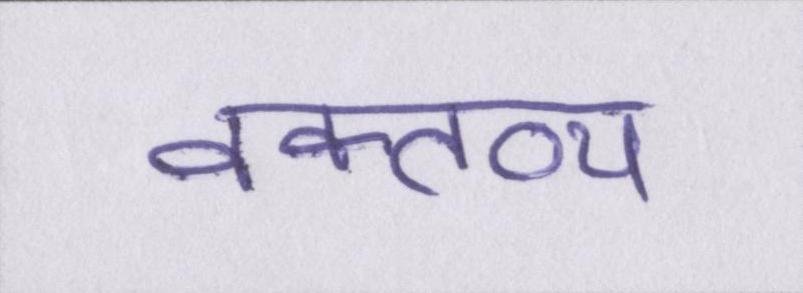 वक्तव्य